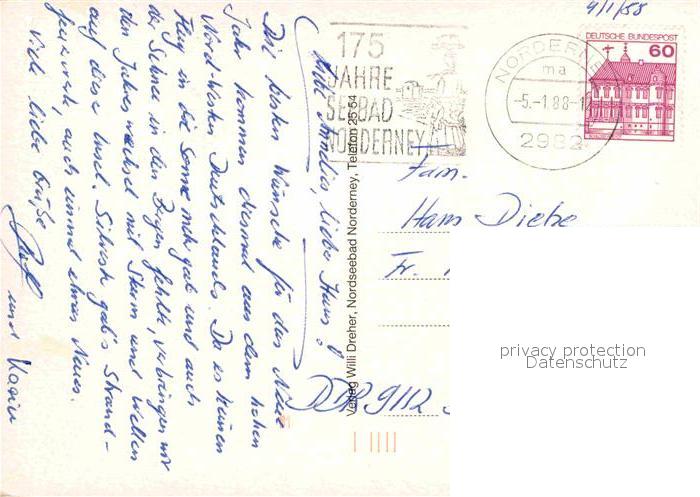 4/1/88
175
JAHRE
SEEBAD
NORDERNEY
NORDERNEY
ma
-5.-1.88-1
2982
DEUTSCHE BUNDESPOST
60
liebe Hans!
Die besten Wünsche für das Neue
Jahr kommen diesmal aus dem hohen
Nord-Westen Deutschlands. Da es keinen
Flug in die Sonne mehr gab und auch
der Schnee in den Bergen fehlte, verbringen wir
den Jahreswechsel mit Sturm und Wellen
auf dieser Insel. Silvester gab's Strand-
feuerwerk, auch einmal etwas Neues.
Viele liebe Grüße
und Karin
Verlag Willi Dreher, Nordseebad Norderney, Telefon 25 54
Fam.
Hans Diebe
Fr.
DDR 9112
privacy protection
Datenschutz